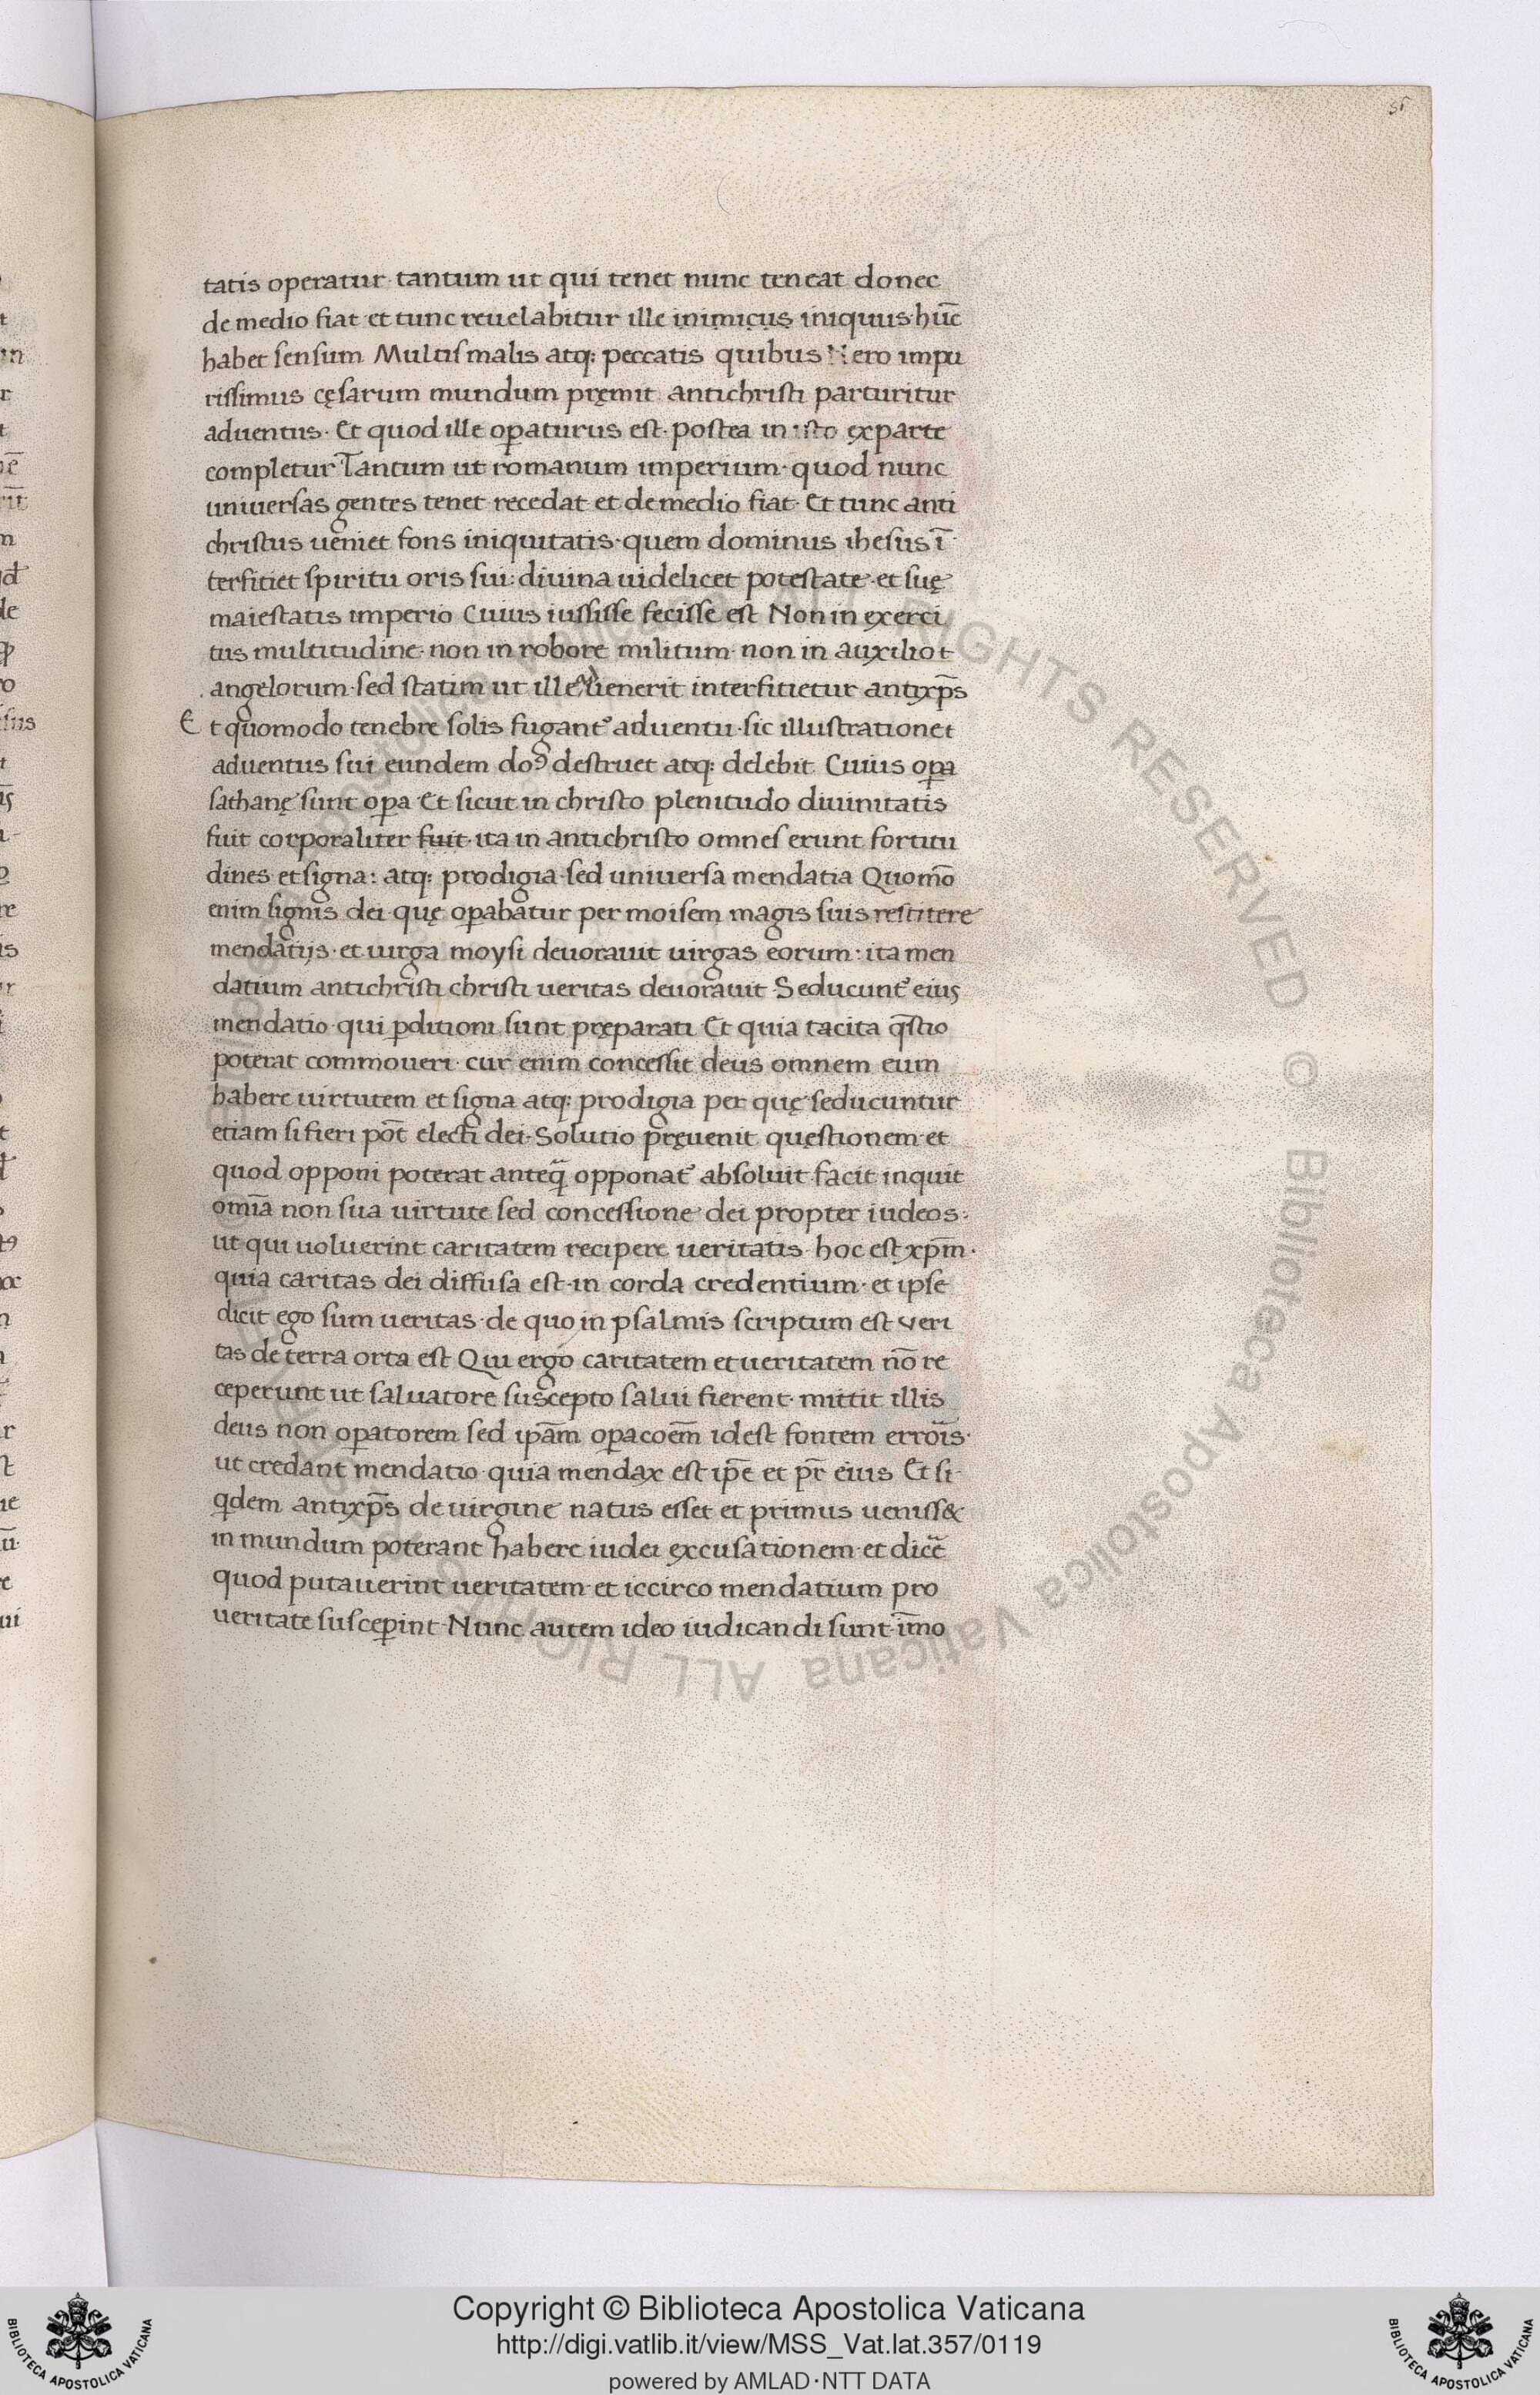 51
tatis operatur· tantum ut qui tenet nunc teneat donec
de medio fiat· et tunc reuelabitur ille inimicus iniquus· hūc
habet sensum Multis malis atq: peccatis quibus Nero impu
rissimus cęsarum mundum pręmit antichristi parturitur
aduentus· Et quod ille oꝑaturus est· postea in isto ex parte
completur Tantum ut romanum imperium· quod nunc
uniuersas gentes tenet recedat et de medio fiat· Et tunc anti
christus ueniet fons iniquitatis· quem dominus ihesus ī
terfitiet spiritu oris sui: diuina uidelicet potestate· et suę
maiestatis imperio Cuius iussisse fecisse est Non in exerci
tus multitudine· non in robore militum· non in auxilio t
angelorum· sed statim ut ille uenerit interfitietur antix̄ps
Et quomodo tenebre solis fugant᾽ aduentu· sic illustratione t
aduentus sui eundem doꝰ destruet atq: delebit Cuius oꝑa
sathanę sunt oꝑa Et sicut in christo plenitudo diuinitatis
fuit corporaliter fuit· ita in antichristo omnes erunt fortitu
dines et signa: atq: prodigia· sed uniuersa mendatia Quomō
enim signis dei quę oꝑabatur per moisem magis suis restitere
mendatijs· et uirga moysi deuorauit uirgas eorum: ita men
datium antichristi christi ueritas deuorauit· Seducunt᾽ eius
mendatio· qui ꝑditioni sunt pręparati Et quia tacita q̄stio
poterat commoueri· cur enim concessit deus omnem eum
habere uirtutem et signa atq: prodigia per quę seducuntur
etiam si fieri pōt electi dei· Solutio pręuenit quęstionem· et
quod opponi poterat anteq̄ opponat᾽ absoluit facit inquit
omīa non sua uirtute sed concessione dei propter iudeos:
ut qui uoluerint caritatem recipere ueritatis· hoc est xp̄m·
quia caritas dei diffusa est· in corda credentium· et ipse
dicit ego sum ueritas· de quo in psalmis scriptum est veri
tas de terra orta est Qui ergo caritatem et ueritatem nō re
ceperunt ut saluatore suscepto salui fierent· mittit illis
deus non oꝑatorem sed ip̄am oꝑacoēm idest fontem errōis·
ut credant mendatio· quia mendax est ip̄e et pr̄ eius Et si·
qdem antix̄ps de uirgine natus esset et primus ueniss&
in mundum poterant habere iudei excusationem· et dic̄e
quod putauerint ueritatem· et iccirco mendatium pro
ueritate susceꝑint· Nunc autem ideo iudicandi sunt· īmo
Copyright © Biblioteca Apostolica Vaticana
http://digi.vatlib.it/view/MSS_Vat.lat.357/0119
powered by AMLAD·NTT DATA